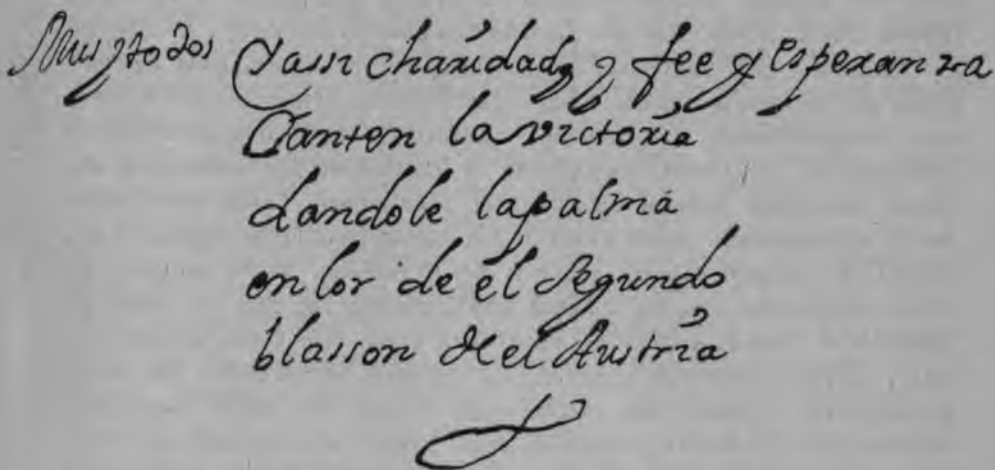 Mus y todos Y assi charidad y fee y esperanza
Canten la victoria
dandole la palma
en lor de el segundo
blasson de el Austria